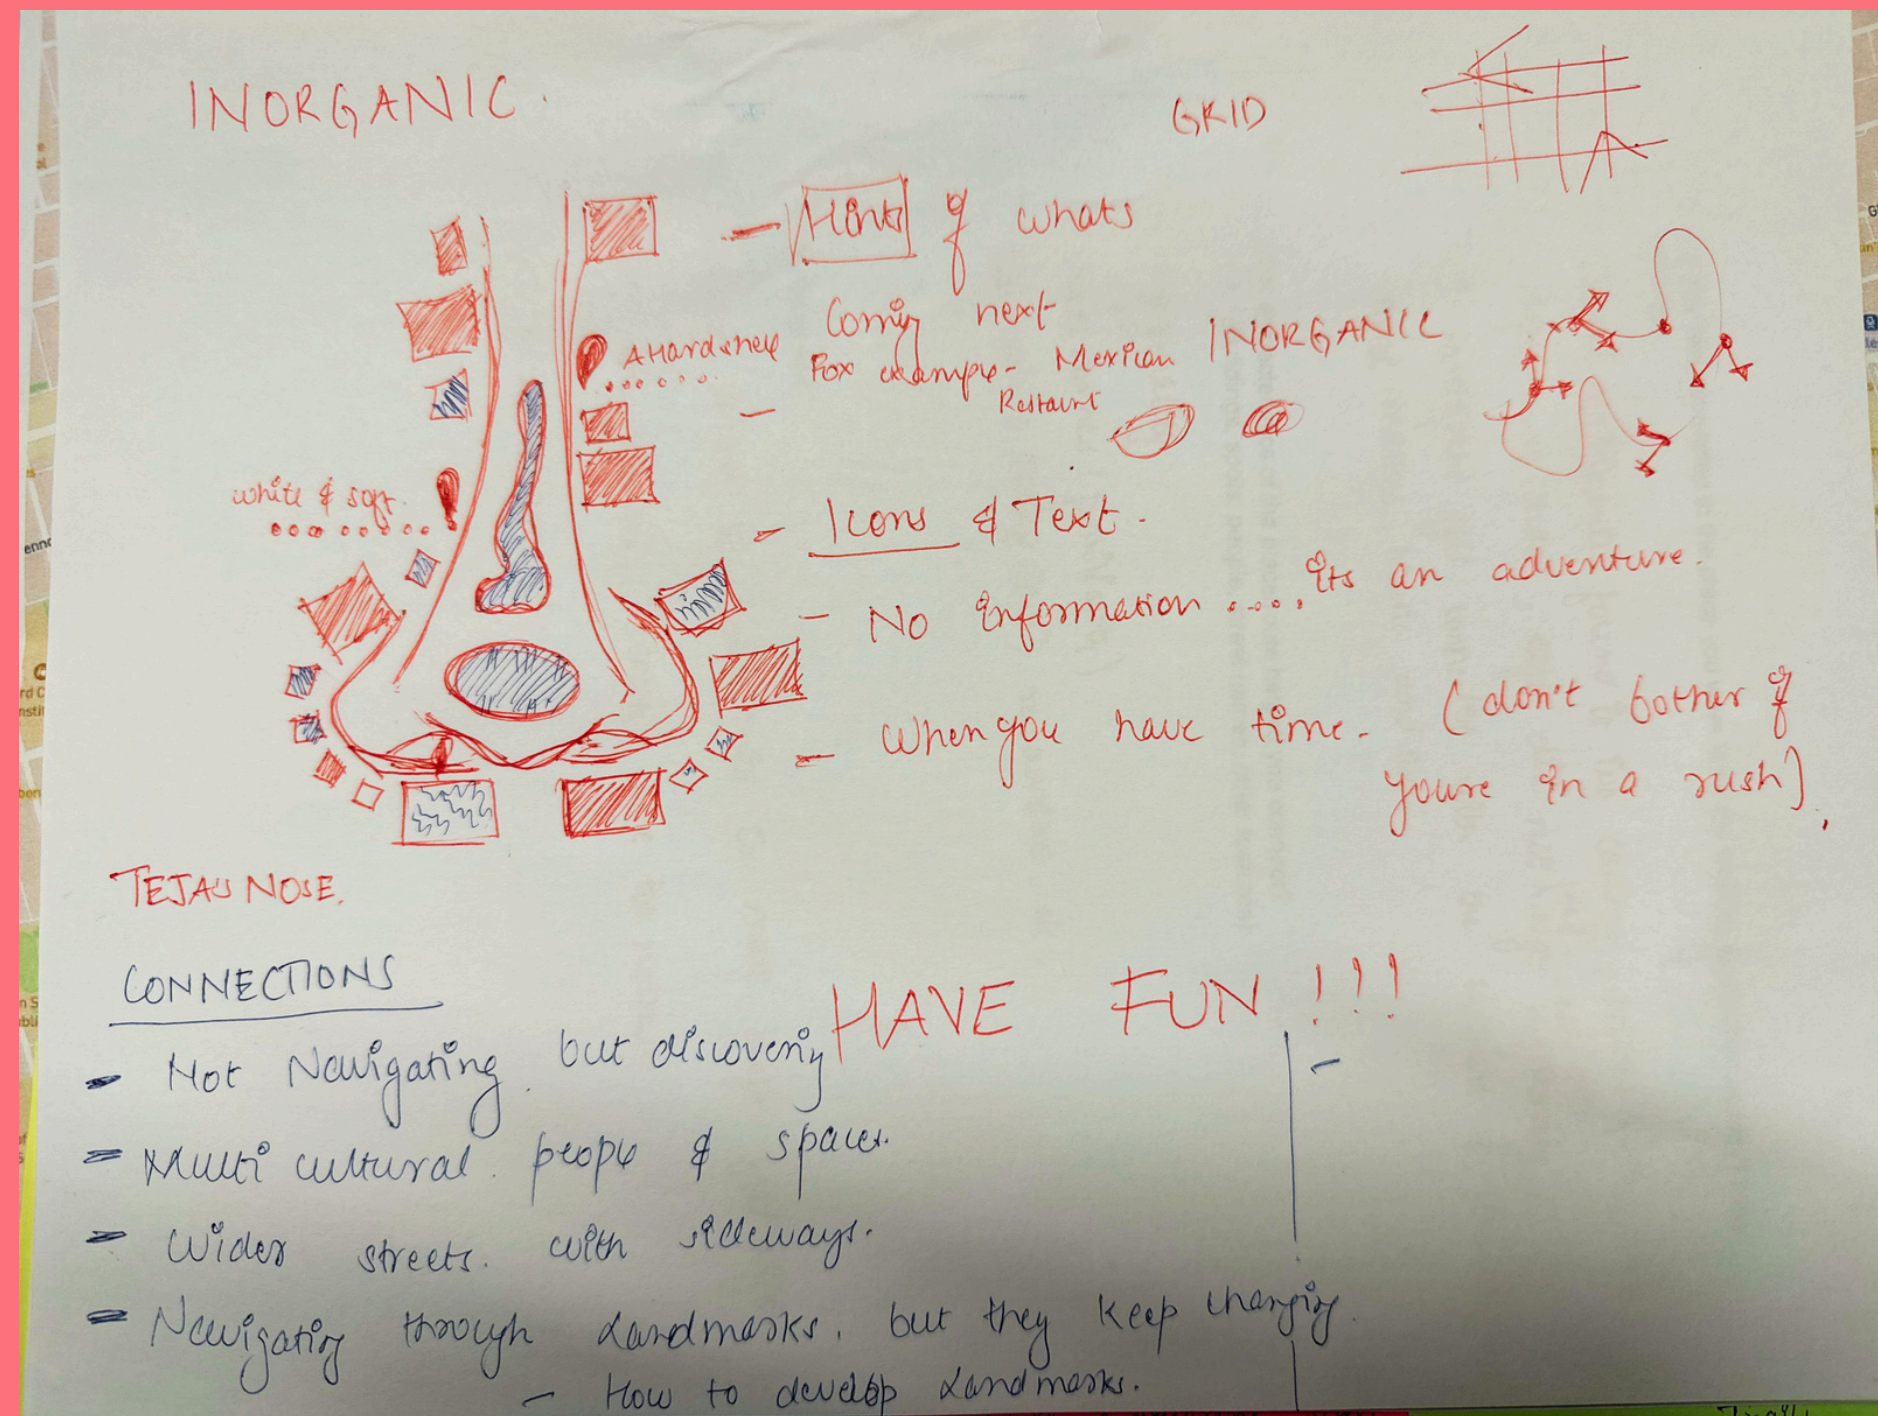 INORGANIC.
GRID
- Hints of whats
Coming next
For example - Mexican
Restaurnt
INORGANIC
A Hard shell
white & soft.
- Icons & Text.
- No information .... its an adventure.
- When you have time. (don't bother if
youre in a rush)
TEJAS NOSE.
CONNECTIONS
HAVE FUN !!!
- Not Navigating but discovering
- Multi cultural people & spaces.
- Wider streets. with sideways.
- Navigating through Landmarks. but they keep changing.
- How to develop Landmarks.